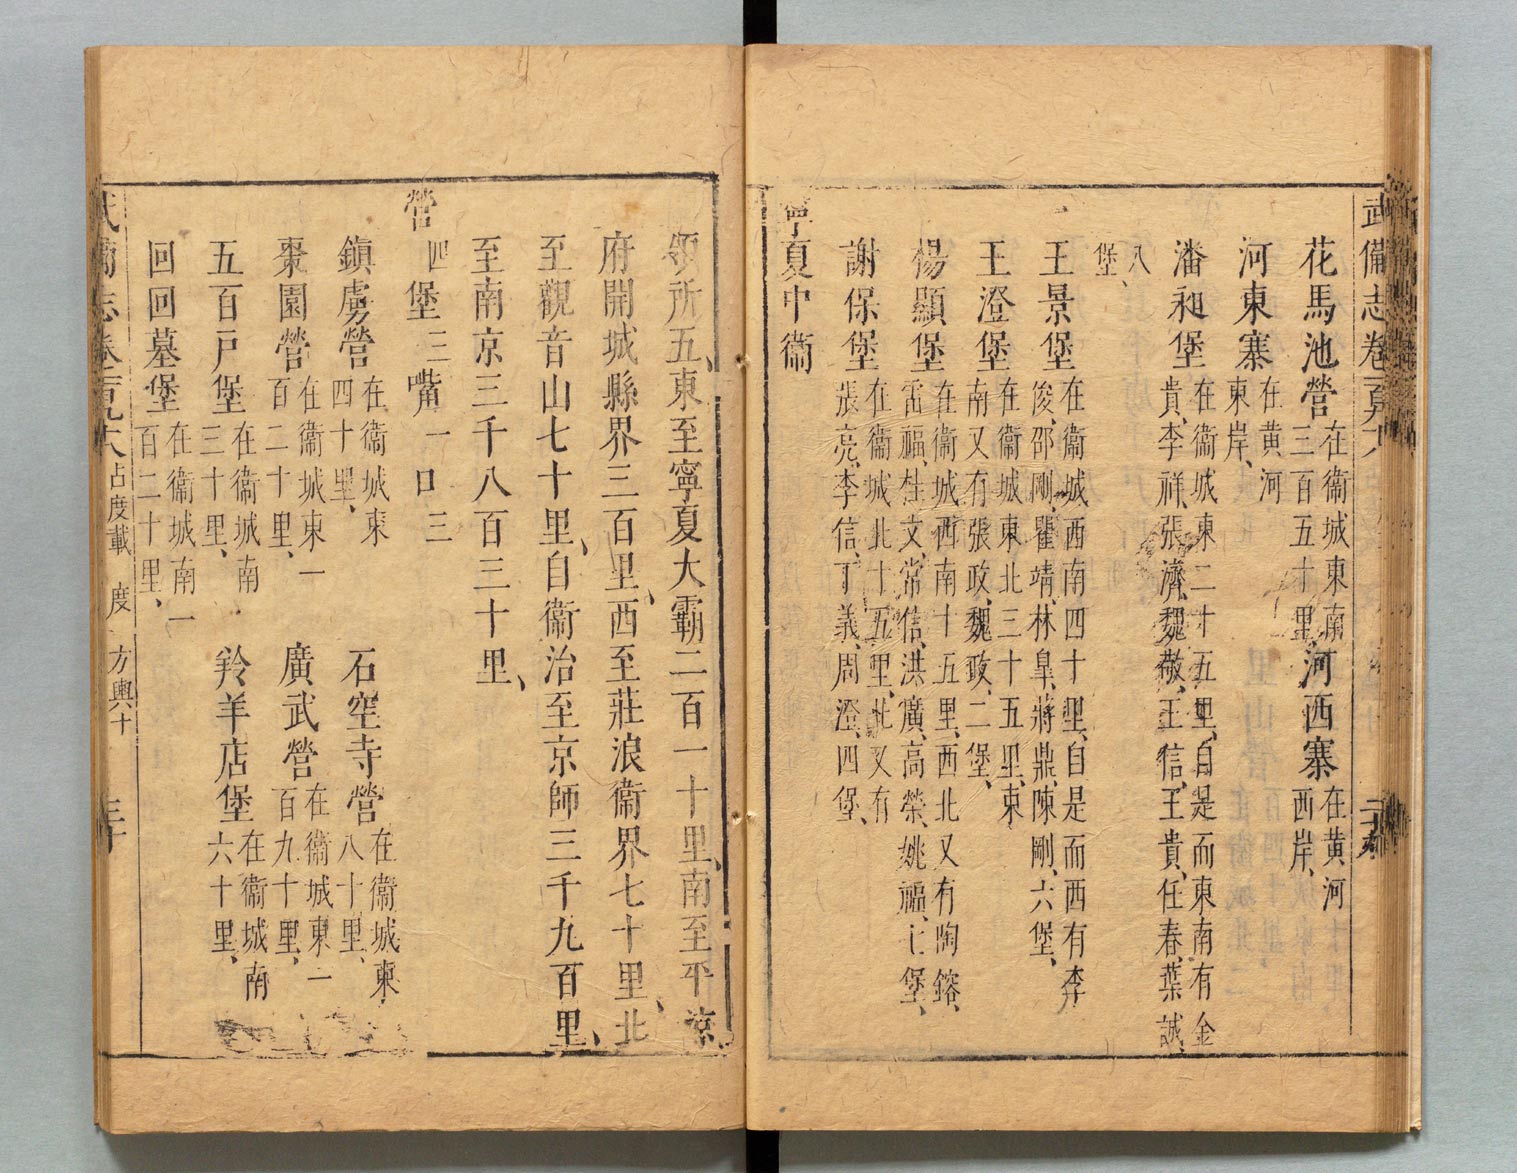 武備志卷
花馬池營在衞城東南三百五十里、河西寨在黃河西岸、
河東寨在黃河東岸、
潘昶堡在衞城東二十五里、自是而東南有金貴、李祥、張濟、魏敬、王信、王貴、任春、葉誠、
八堡、
王景堡在衞城西南四十里、自是而西有李俊、邵剛、瞿靖、林臯、蔣鼎、陳剛、六堡、
王澄堡在衞城東北三十五里、東南又有張政、魏政、二堡、
楊顯堡在衞城西南十五里、西北又有陶鎔、雷福、桂文、常信、洪廣、高榮、姚福、七堡、
謝保堡在衞城北十五里、北又有張亮、李信、丁義、周澄、四堡、
寧夏中衞
領所五、東至寧夏大霸二百一十里、南至平涼
府開城縣界三百里、西至莊浪衞界七十里、北
至觀音山七十里、自衞治至京師三千九百里、
至南京三千八百三十里、
營四堡三嘴一口三
鎮虜營在衞城東四十里、石空寺營在衞城東八十里、
棗園營在衞城東一百二十里、廣武營在衞城東一百九十里、
五百戶堡在衞城南三十里、羚羊店堡在衞城南六十里、
回回墓堡在衞城南一百二十里、
武備志卷 占度載 度 方輿十 三十